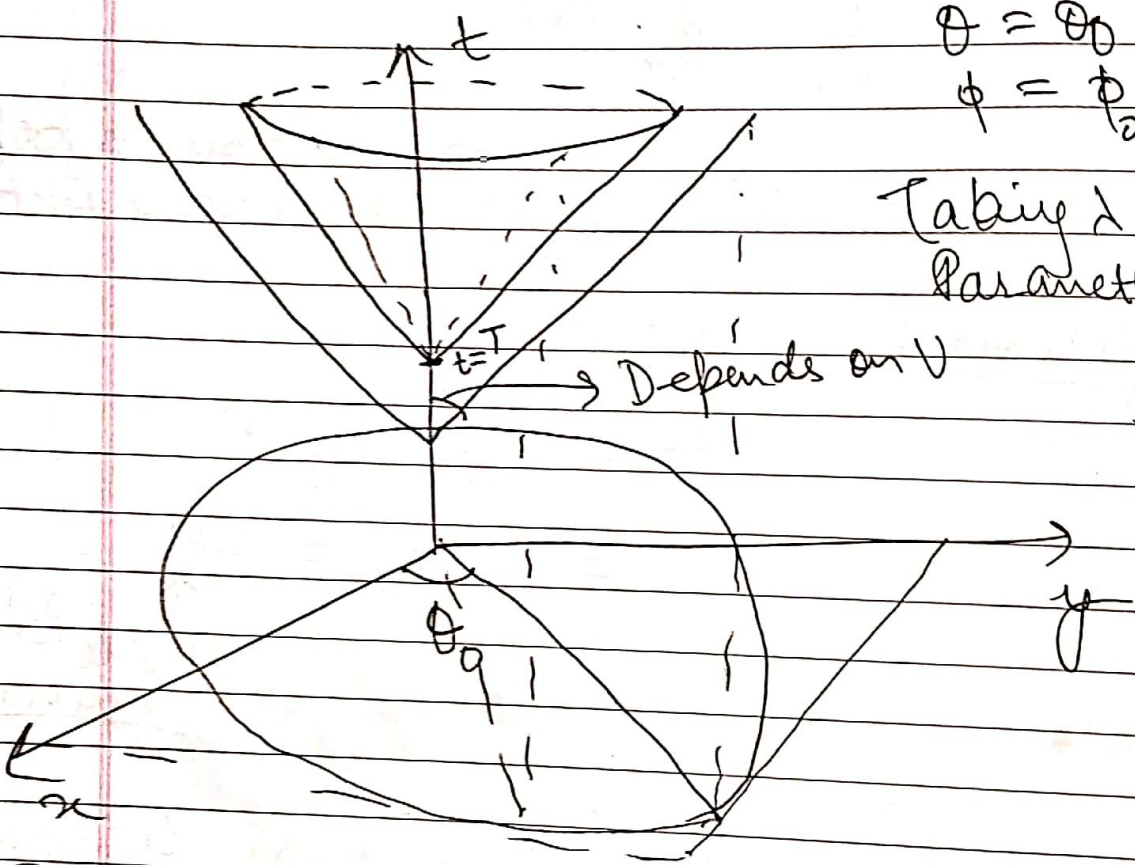 t
θ = θ0
ϕ = ϕ0
Taking λ
Paramet
t=T
Depends on V
θ
y
x